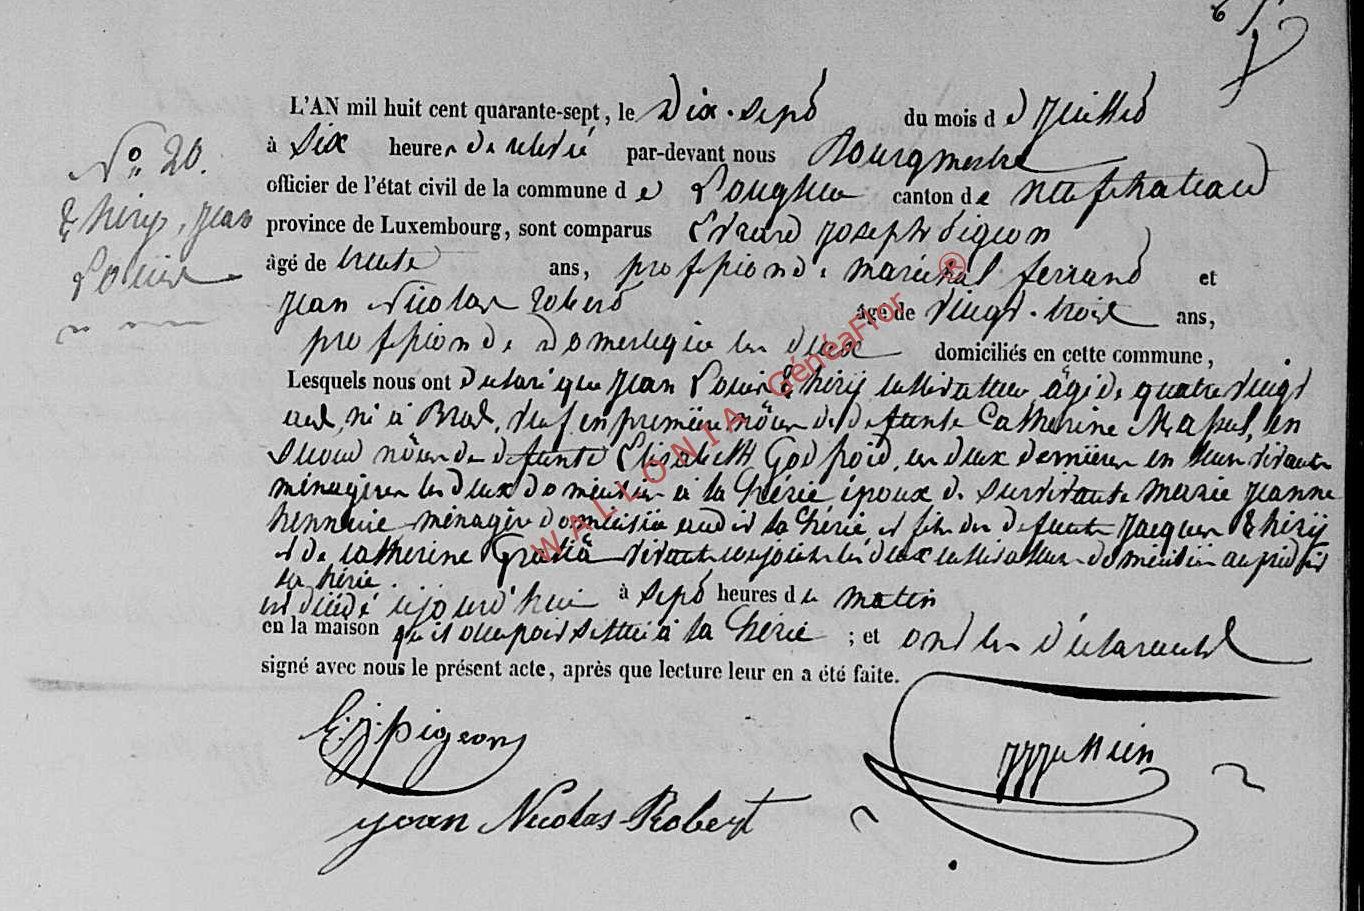 N° 20.
Thiry, Jean
Louis
L'AN mil huit cent quarante-sept, le Dix-sept du mois d e Juillet
à Six heures de relevé par-devant nous Bourgmestre
officier de l'état civil de la commune d e Longlier canton de Neufchateau
province de Luxembourg, sont comparus Evrard Joseph Pigeon
âgé de trente ans, proffession de maréchal ferrand et
Jean Nicolas Robert âgé de vingt-trois ans,
proffession de domestique les deux domiciliés en cette commune,
Lesquels nous ont Déclaré que Jean Louis Thiry cultivateur âgé de quatre vingt
ans, né à Bras, veuf en première nôces de défunte Catherine en
Second nôces de défunte Elisabeth Godfroid, les deux dernières en leur vivante
ménagères les deux domiciliés à la hérie époux de Survivante Marie Jeanne
ménagère domiciliée audit la hérie et fils des défunts Jacques Thiry
et de Catherine vivant conjoints les deux cultivateurs domiciliés au prédit
la hérie.
est décédé aujourd'hui à Sept heures du matin
en la maison qu'il occupoit Située à la hérie ; et ont les Déclarants
signé avec nous le présent acte, après que lecture leur en a été faite.
E. J. Pigeon
jean Nicolas Robert
WALLONIA GénéaFror ®